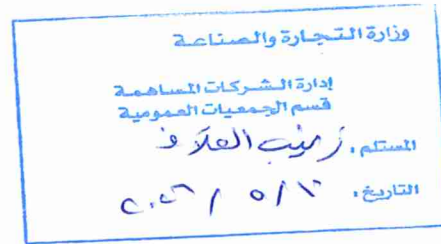 وزارة التجارة والصناعة
إدارة الشركات المساهمة
قسم الجمعيات العمومية
المستلم : زينب العلاف
التاريخ :